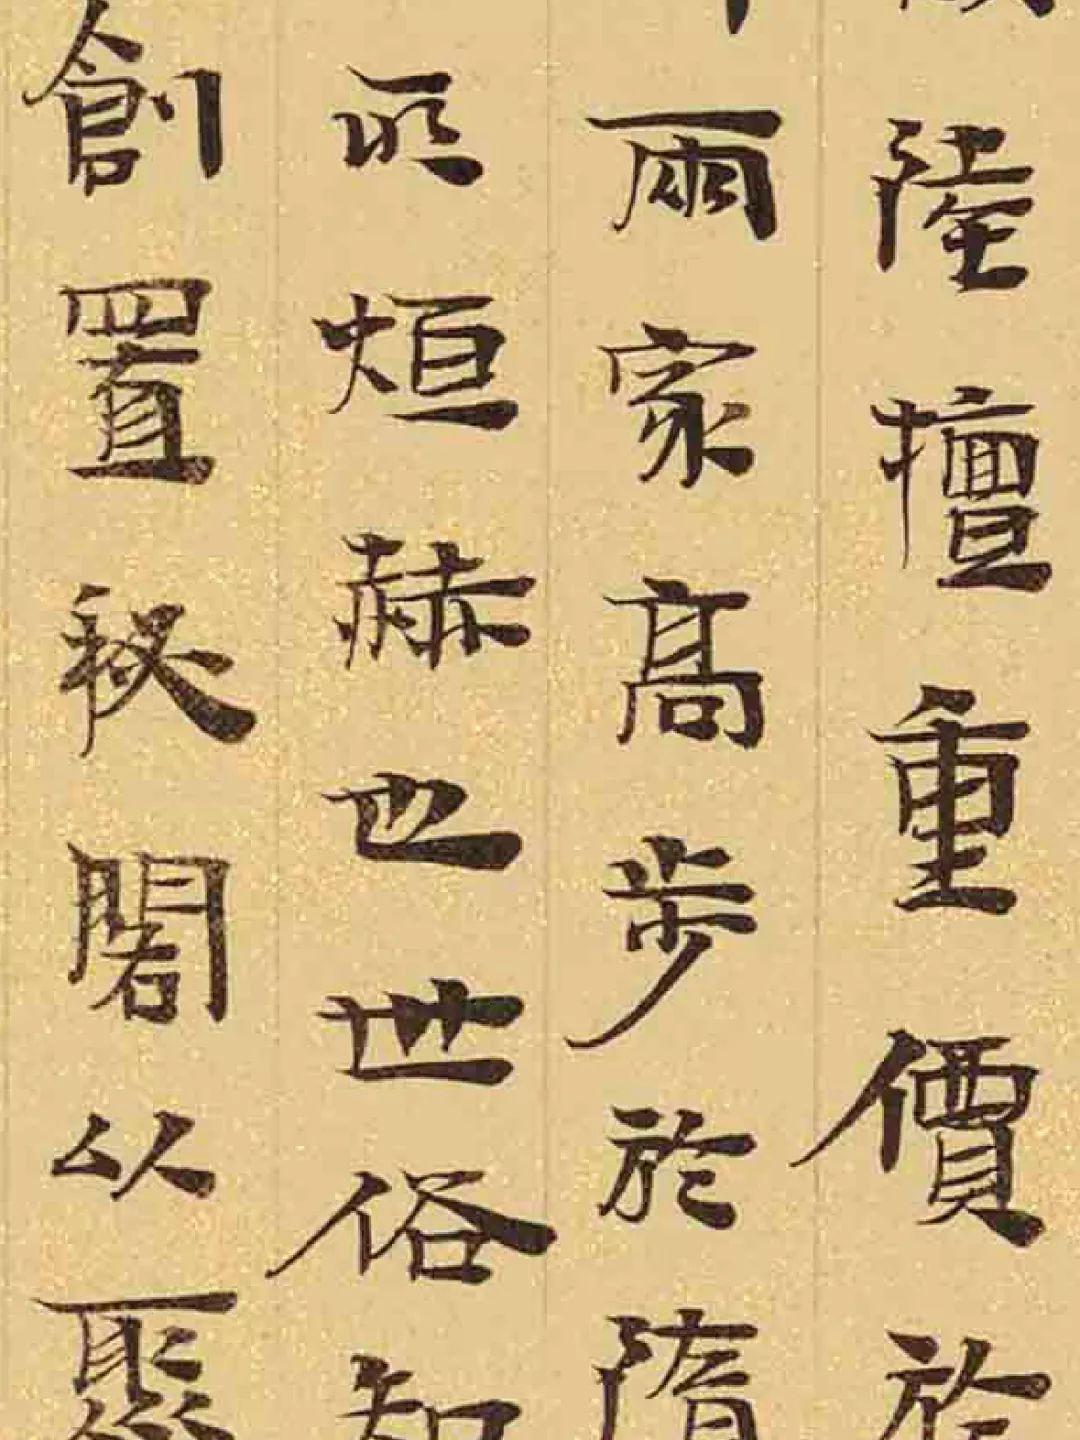 陸擅重價於
兩家高步於隋
所烜赫也世俗知
創置秘閣以聚